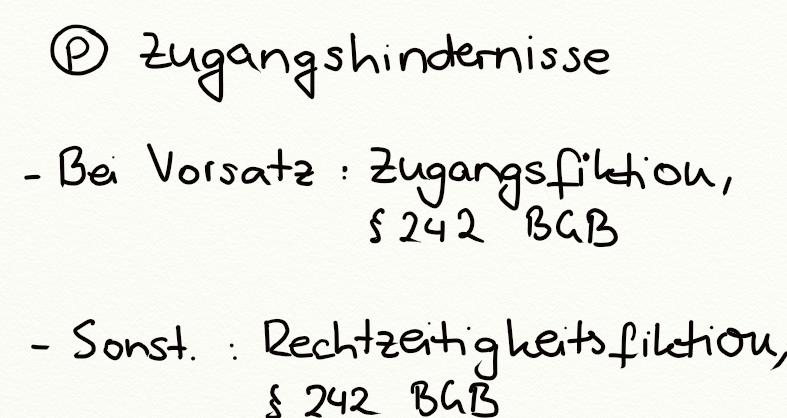 Ⓟ Zugangshindernisse
- Bei Vorsatz : Zugangsfiktion,
§ 242 BGB
- Sonst. : Rechtzeitigkeitsfiktion,
§ 242 BGB